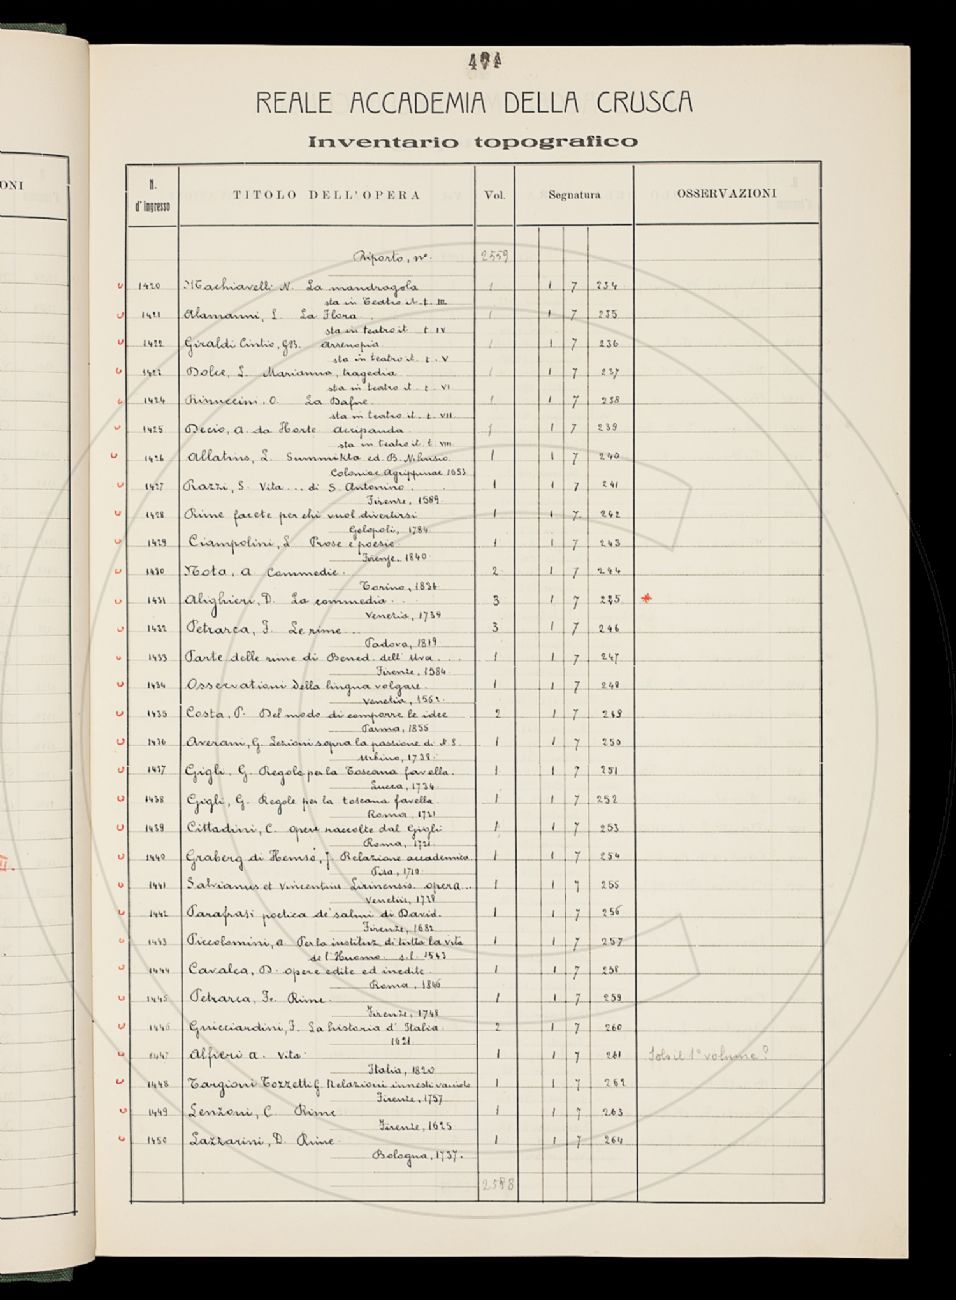 471
REALE ACCADEMIA DELLA CRUSCA
Inventario topografico
ONI
N. d'Ingresso TITOLO DELL'OPERA Vol. Segnatura OSSERVAZIONI
Riporto, n°. 2559
1420 Machiavelli N. La mandragola 1 1 7 234
sta in Teatro it. t. III
1421 Alamanni, L. La Flora 1 1 7 235
sta in teatro it t IV
1422 Giraldi Cintio, GB. Arrenopia 1 1 7 236
sta in teatro it. t. V
1423 Dolce, L. Marianna, tragedia 1 1 7 237
sta in teatro it. t. VI
1424 Rinuccini, O. La Dafne. 1 1 7 238
sta in teatro it. t. VII
1425 Decio, A. da Horte Acripanda 1 1 7 239
sta in teatro it. t. VIII
1426 Allatius, L. Summikta ed. B. Nihusio. 1 1 7 240
Coloniae Agrippinae 1653
1427 Razzi, S. Vita ... di S. Antonino. 1 1 7 241
Firenze, 1589
1428 Rime facete per chi vuol divertirsi 1 1 7 242
Gelopoli, 1784
1429 Ciampolini, L. Prose e poesie 1 1 7 243
Firenze, 1840
1430 Nota, A. Commedie. 2 1 7 244
Torino, 1836
1431 Alighieri, D. La commedia 3 1 7 245 *
Venezia, 1739
1432 Petrarca, F. Le rime ... 3 1 7 246
Padova, 1819
1433 Parte delle rime di Bened. dell' Uva .... 1 1 7 247
Firenze, 1584
1434 Osservationi della lingua volgare. 1 1 7 248
Venetia, 1562.
1435 Costa, P. Del modo di comporre le idee 2 1 7 249
Parma, 1835
1436 Averani, G. Lezioni sopra la passione di N. S. 1 1 7 250
Urbino, 1738.
1437 Gigli, G. Regole per la Toscana favella. 1 1 7 251
Lucca, 1734
1438 Gigli, G. Regole per la toscana favella 1 1 7 252
Roma, 1721
1439 Cittadini, C. opere raccolte dal Gigli 1 1 7 253
Roma, 1721.
1440 Graberg di Hemsö, J. Relazione accademica 1 1 7 254
Pisa,
1441 Salvianus et Vincentius Lirinensis. opera ... 1 1 7 255
Venetiis, 1728
1442 Parafrasi poetica de' salmi di David. 1 1 7 256
Firenze, 1682
1443 Piccolomini, A. Per la instituz. di tutta la vita 1 1 7 257
de l'Huomo. s.l. 1543
1444 Cavalca, D. opere edite ed inedite 1 1 7 258
Roma, 1846
1445 Petrarca, Fr. Rime. 1 1 7 259
Firenze, 1748
1446 Guicciardini, F. La historia d'Italia 2 1 7 260
1621
1447 Alfieri A. Vita 1 1 7 261 Solo il 1° volume?
Italia, 1820
1448 Targioni Tozzetti G. Relazioni innesti vaiuolo 1 1 7 262
Firenze, 1757
1449 Lenzoni, C. Rime 1 1 7 263
Firenze, 1625
1450 Lazzarini, D. Rime 1 1 7 264
Bologna, 1737.
2598